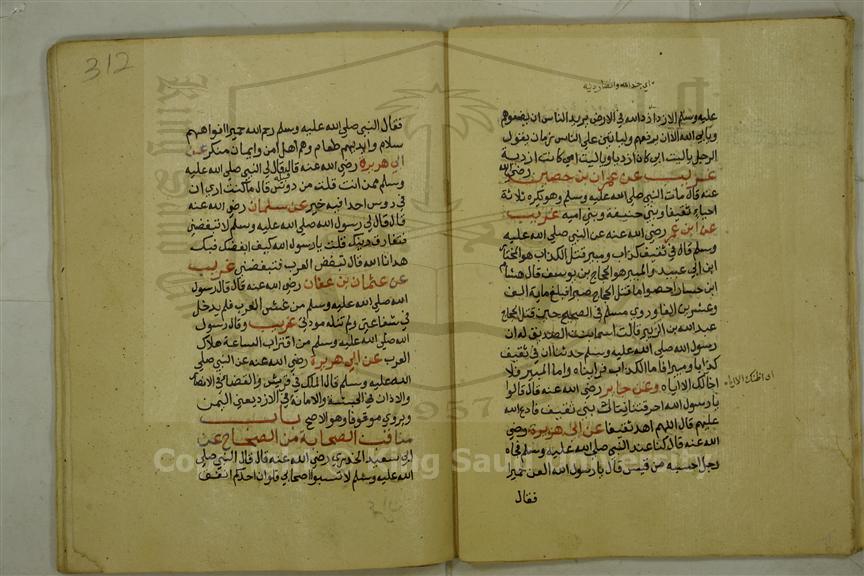 اي جند الله وانصار دينه
عليه وسلم الازد ازد الله في الارض يريد الناس ان يضعوهم
ويابى الله الا ان يرفعهم وليأتين على الناس زمان يقول
الرجل ياليت ابي كان ازديا وياليت امي كانت ازدية
غريب عن عمران بن حصين رضي الله
عنه قال مات النبي صلى الله عليه وسلم وهو يكره ثلاثة
احياء ثقيفا وبني حنيفة وبني اميه غريب
عن ابن عمر رضي الله عنه عن النبي صلى الله عليه
وسلم قال في ثقيف كذاب ومبير قيل الكذاب هو المختار
ابن ابي عبيد والمبير هو الحجاج بن يوسف قال هشام
ابن حسان احصوا ما قتل الحجاج صبرا فبلغ ماية الف
وعشرين الفا وروى مسلم في الصحيح حين قتل الحجاج
عبد الله بن الزبير قالت اسما بنت الصديق له ان
رسول الله صلى الله عليه وسلم حدثنا ان في ثقيف
كذابا ومبيرا فاما الكذاب فرايناه واما المبير فلا
اخالك الا اياه وعن جابر رضي الله عنه قال قالوا
اي اظنك الا اياه
يا رسول الله احرقتنا نبال بني ثقيف فادع الله
عليهم قال اللهم اهد ثقيفا عن ابي هريرة رضي
الله عنه قال كنا عند النبي صلى الله عليه وسلم فجاه
رجل احسبه من قيس قال يا رسول الله العن حميرا
فقال
312
فقال النبي صلى الله عليه وسلم رحم الله حميرا افواههم
سلام وايديهم طعام وهم اهل امن وايمان منكر عن
ابي هريرة رضي الله عنه قال قال لي النبي صلى الله عليه
وسلم ممن انت قلت من دوس قال ما كنت ارى ان
في دوس احدا فيه خير عن سلمان رضي الله عنه
قال قال لي رسول الله صلى الله عليه وسلم لا تبغضني
فتفارق دينك قلت يا رسول الله كيف ابغضك وبك
هدانا الله قال تبغض العرب فتبغضني غريب
عن عثمان بن عفان رضي الله عنه قال قال رسول
الله صلى الله عليه وسلم من غش العرب فلم يدخل
في شفاعتي ولم تنله مودتي غريب وقال رسول
الله صلى الله عليه وسلم من اقتراب الساعة هلاك
العرب عن ابي هريرة رضي الله عنه عن النبي صلى
الله عليه وسلم قال الملك في قريش والقضا في الانصار
والاذان في الحبشة والامانة في الازد يعني اليمن
ويروي موقوفا وهو الاصح باب
مناقب الصحابة من الصحاح عن
ابي سعيد الخدري رضي الله عنه قال قال النبي صلى
الله عليه وسلم لا تسبوا اصحابي فلو ان احدكم انفق
1957
Copyright © King Saud University